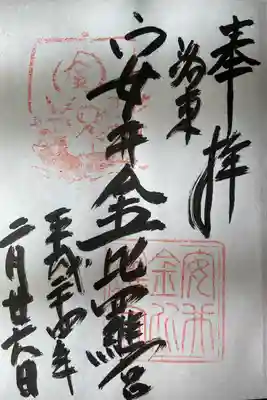 奉拝
洛東
安井金比羅宮
平成二十四年
二月廿六日